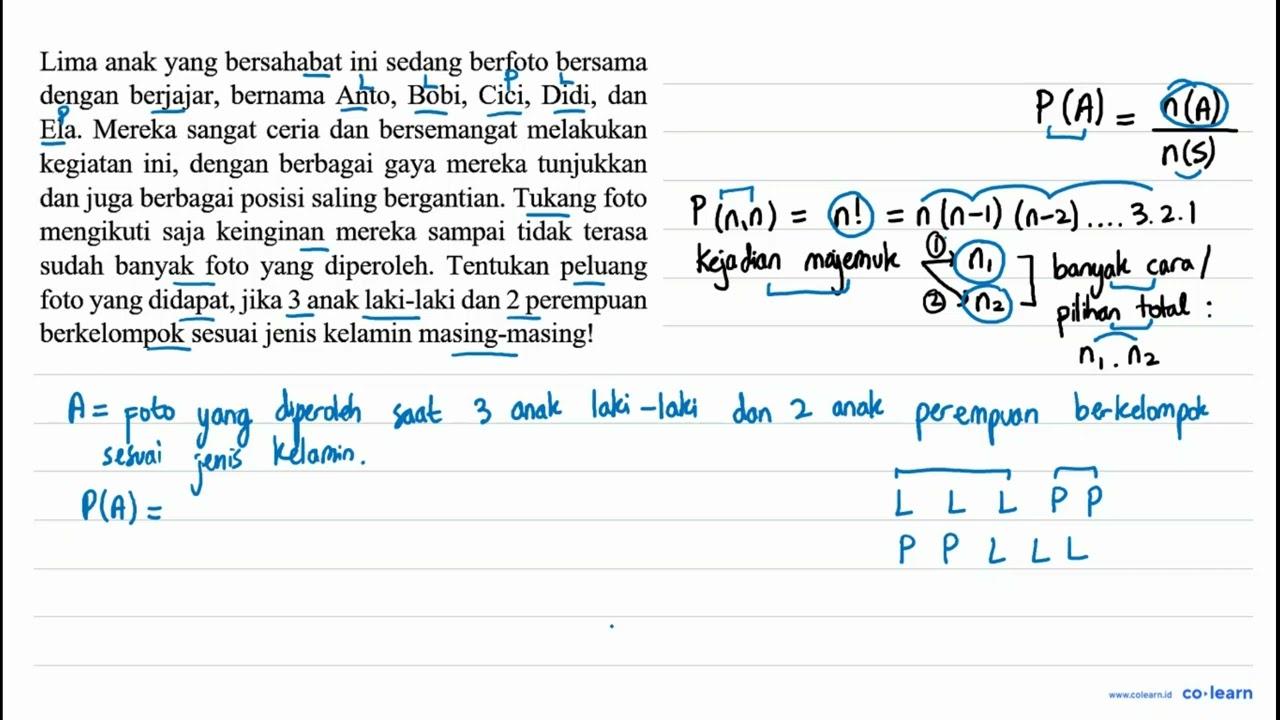 Lima anak yang bersahabat ini sedang berfoto bersama
dengan berjajar, bernama Anto, Bobi, Cici, Didi, dan
L L P L
Ela. Mereka sangat ceria dan bersemangat melakukan
P
kegiatan ini, dengan berbagai gaya mereka tunjukkan
dan juga berbagai posisi saling bergantian. Tukang foto
mengikuti saja keinginan mereka sampai tidak terasa
sudah banyak foto yang diperoleh. Tentukan peluang
foto yang didapat, jika 3 anak laki-laki dan 2 perempuan
berkelompok sesuai jenis kelamin masing-masing!
P(A) = n(A)
n(S)
P(n,n) = n! = n(n-1) (n-2) .... 3.2.1
kejadian majemuk ① n₁
② n₂
banyak cara/
pilihan total :
n₁ . n₂
A = foto yang diperoleh saat 3 anak laki-laki dan 2 anak perempuan berkelompok
sesuai jenis kelamin.
P(A) =
L L L P P
P P L L L
www.colearn.id co·learn